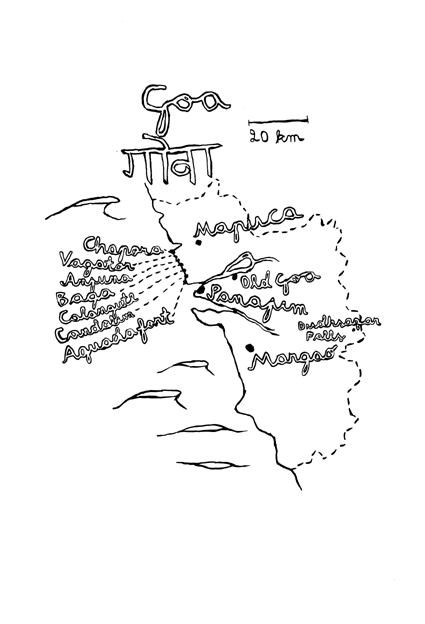 Goa
20 km
गोवा
Mapusa
Chapora
Vagator
Anjuna
Baga
Calangute
Candolim
Aquada fort
Old Goa
Panajim
Dudhsagar
Falls
Margao